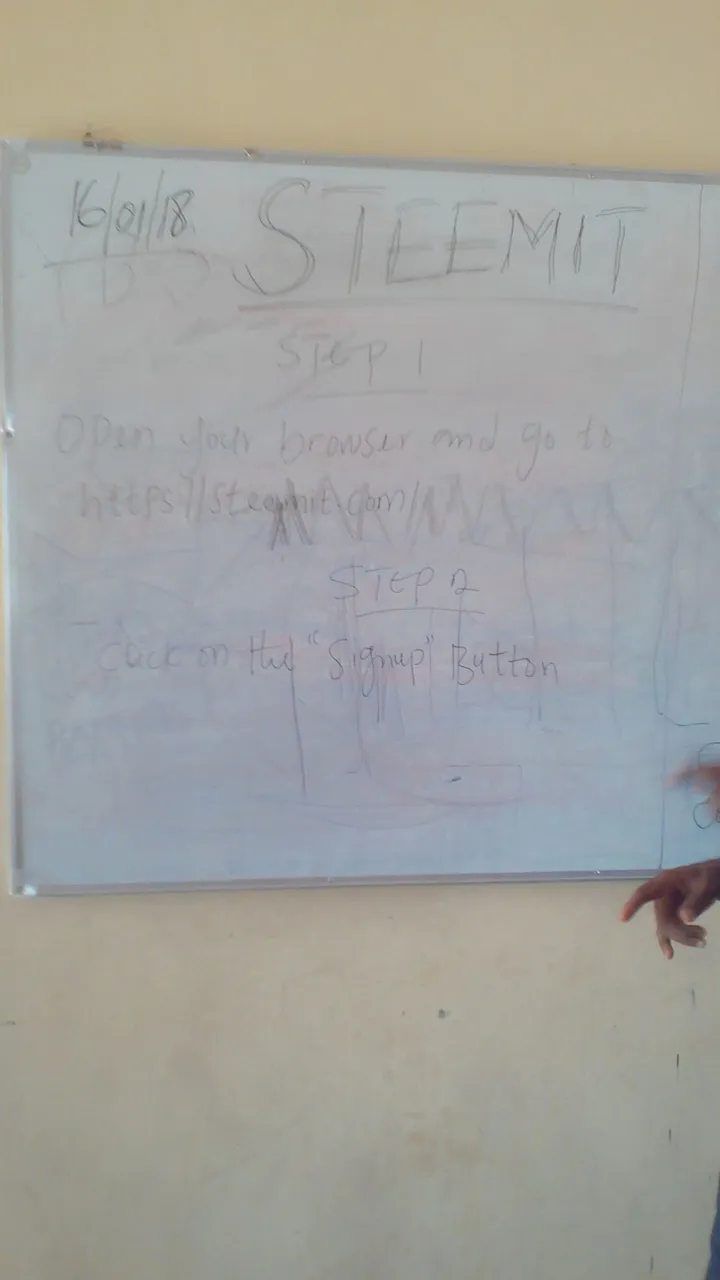 16/01/18.
STEEMIT
STEP 1
Open your browser and go to
https://steemit.com/
STEP 2
Click on the "Signup" Button